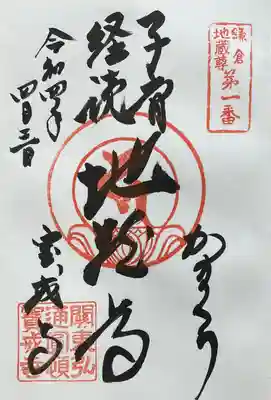 鎌倉
地蔵尊
第一番
かまくら
子育
経読
地蔵尊
宝戒寺
令和四年
四月三日
關東弘
通圓頓
寶戒寺